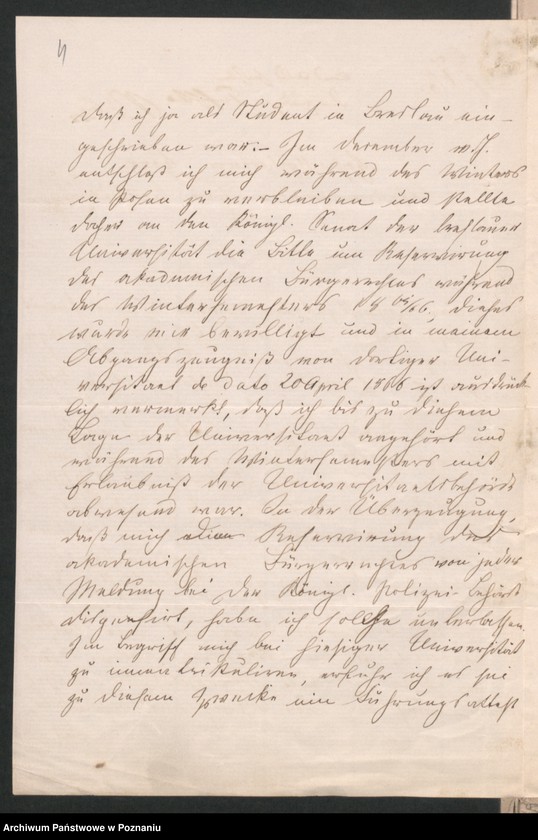 4
daß ich ja als Student in Breslau ein-
geschrieben war. – Im December v. J.
entschloß ich mich während des Winters
in Posen zu verbleiben und stellte
daher an den Königl. Senat der breslauer
Universität die Bitte um Reservirung
des akademischen Bürgerrechtes während
des Wintersemesters 1865/66, dieses
wurde mir bewilligt und in meinem
Abgangszeugniß von dortiger Uni-
versitaet de dato 20 April 1866 ist ausdrück-
lich vermerkt, daß ich bis zu diesem
Tage der Universitaet angehört und
während des Wintersemesters mit
Erlaubniß der Universitaetsbehörde
abwesend war. In der Überzeugung,
daß mich Reservirung des
akademischen Bürgerrechtes von jeder
Meldung bei der Königl. Polizei-Behörde
dispensirt, habe ich solche unterlassen.
Im Begriff mich bei hiesiger Universität
zu immatrikuliren, erfuhr ich es sei
zu diesem Zwecke ein Führungsattest
Archiwum Państwowe w Poznaniu